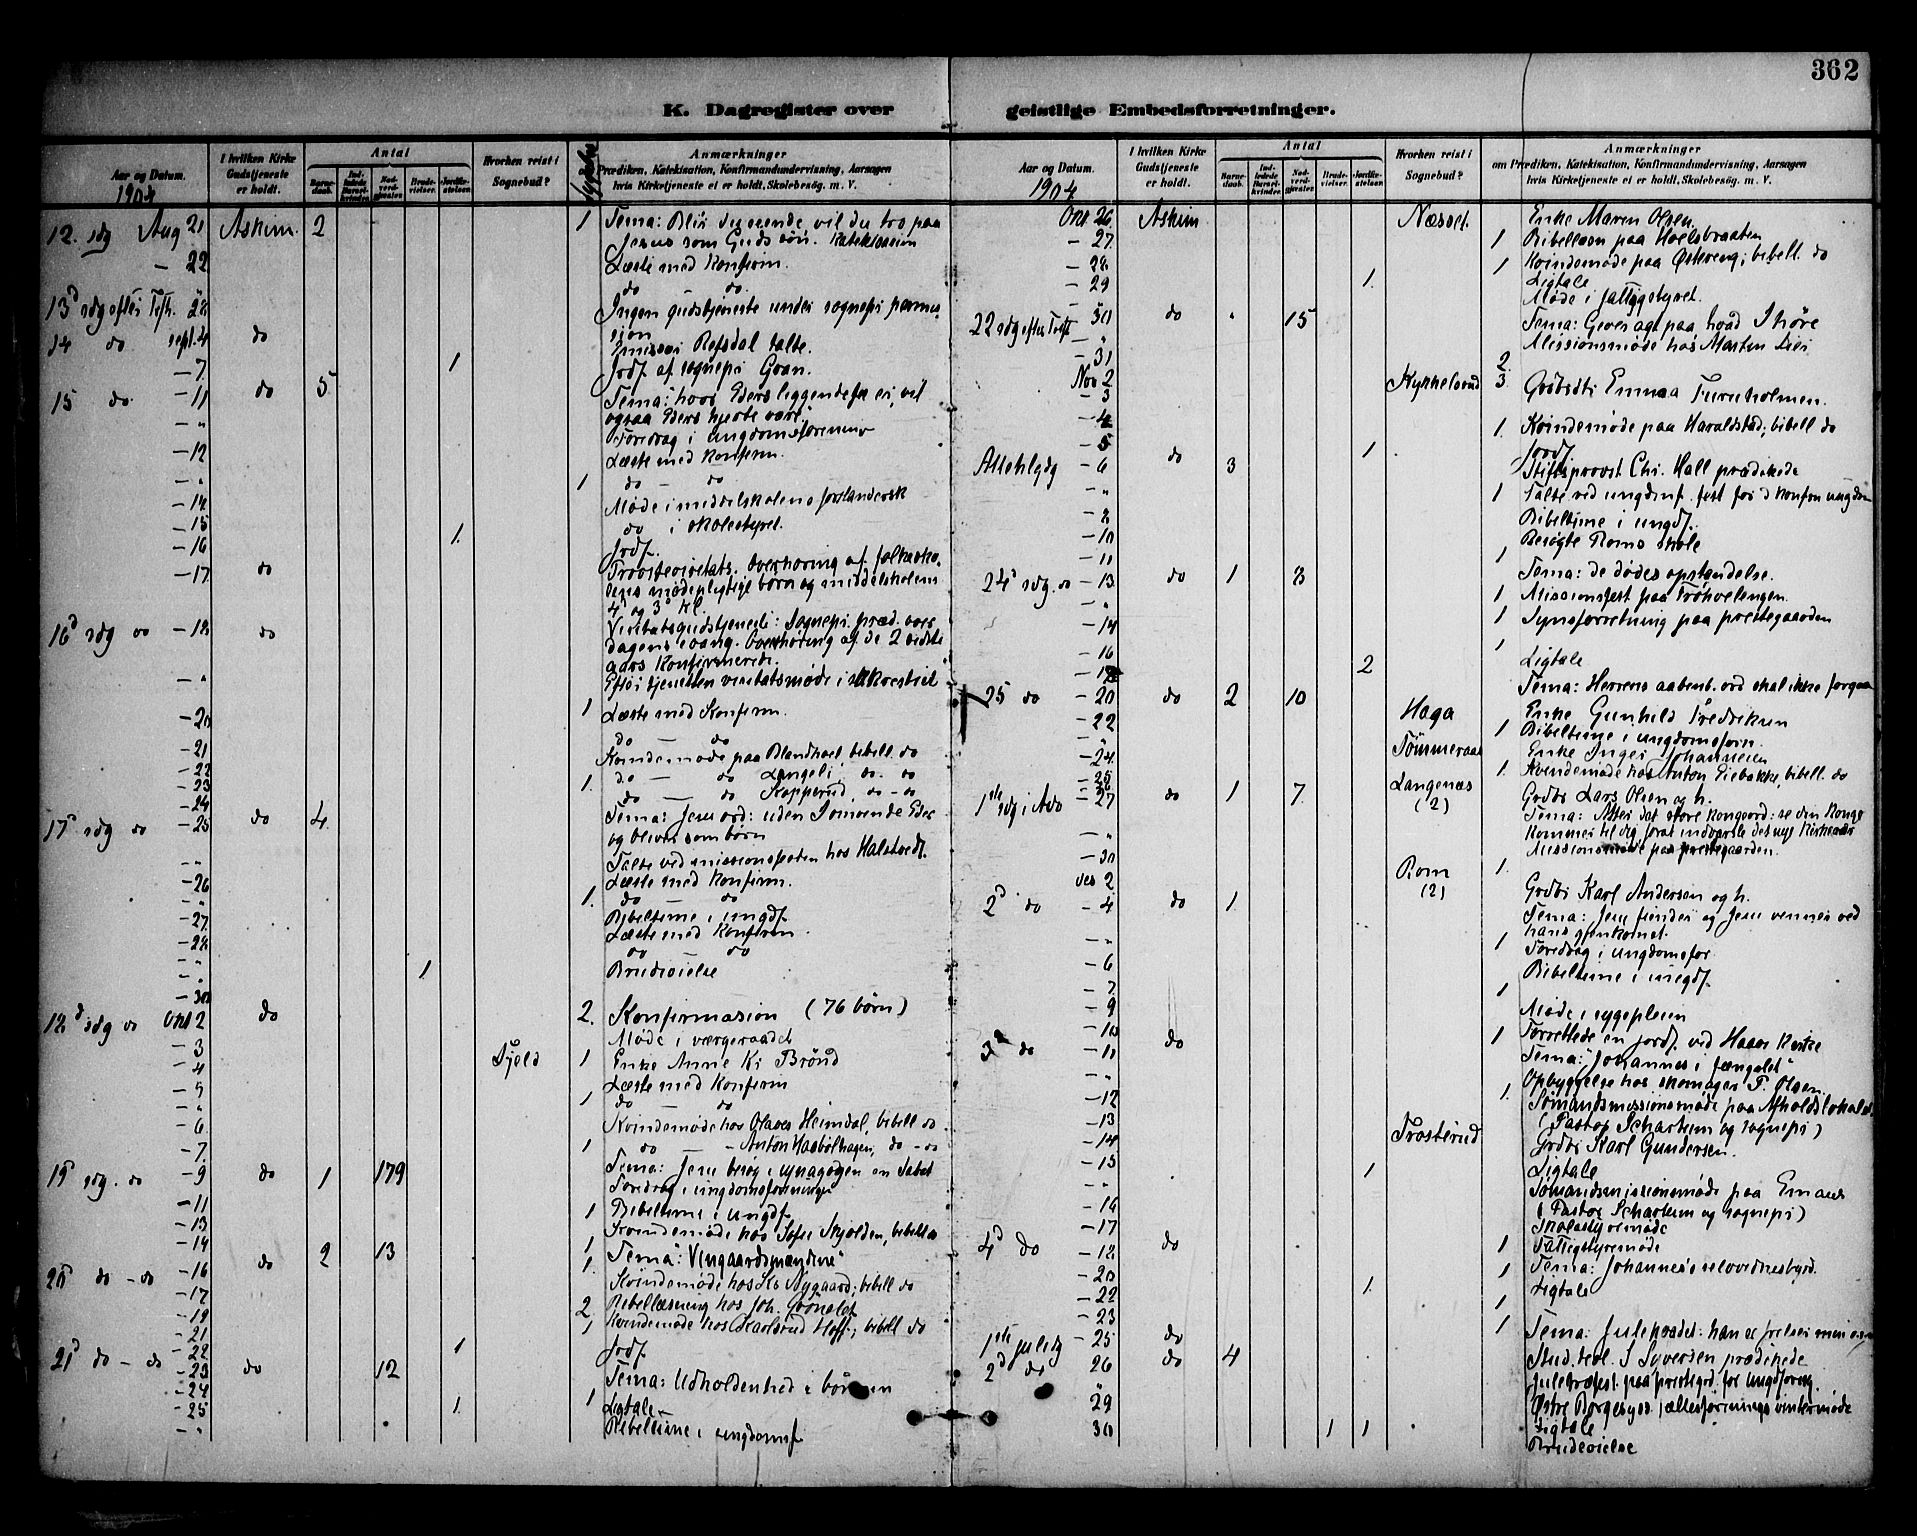 362
K. Dagregister over geistlige Embedsforretninger.
Aar og Datum.
1904
I hvilken Kirke Gudstjeneste er holdt.
Antal
Barnedaab.
Indledede Barselkvinder.
Nadverdgjæster.
Brudevielser.
Jordfæstelser.
Hvorhen reist i Sognebud?
Sygebesøg
Anmærkninger
om Prædiken, Katekisation, Konfirmandundervisning, Aarsagen
hvis Kirketjeneste ei er holdt, Skolebesøg. m. V.
12. sdg Aug 21 Askim. 2 1 Tema: Blir du seende, vil du tro paa
Jesus som Guds søn. Katekisasion
- 22 Læste med Konfirm.
do do.
13d sdg efter Tefh. 28 Ingen gudstjeneste under sognepr permis-
sjon
14 do sept. 4 do Emissær Refsdal talte.
- 7 1 Jrdf. af sognepr Gran.
15 do - 11 do 5 Tema: hvor Eders liggendefæ er, vil
ogsaa Eders hjerte være.
- " Foredrag i ungdomsforening
- 12 Læste med Konfirm.
- " 1 do - do
- 14 Møde i middelskolens forstandersk
- 15 do i skolestyret.
- 16 1. Jrdf.
- 17 do Provstevisitats. Overhøring af folkesko-
lens mødepligtige børn og middelskolens
4d og 3d kl.
16d sdg do - 18 do Visitatsgudstjeneste: Sognepr. præd. over
dagens evang. Overhøring af de 2 sidste
aars Konfirmerede.
- " Efter tjenesten visitatsmøde i sakrestiet
- 20 1 Læste med Konfirm.
- 21 do - do
- 22 Kvindemøde paa Blandhoel, bibell. do
- 23 do - do Langeli, do. do
- 24 1. do - do Kopperud do - do
17d sdg do - 25 do 4. Tema: Jesu ord: uden I omvende Eder
og bliver som børn
- " Talte ved missionsfesten hos Halstvedt.
- 26 Læste med Konfirm.
- " 1. do do
- 27 Bibeltime i ungdf.
- 28 Læste med Konfirm.
- " do do
- " 1 Brudevielse
- 30
18d sdg do Okt 2 do 2. Konfirmasion (76 børn)
- 3 Møde i værgeraadet
- 4 1 Enke Anne Kr Brönd
- 5 Læste med Konfirm
- " 1 do - do
- 6 Kvindemøde hos Olaves Heimdal, bibell do
- 7. 1 do - Anton Haabølhagen, do - do
19d sdg. do - 9 do 1 179 Tema: Jesu besøg i synagogen en Sabat
Foredrag i ungdomsforeningen
- 11 1 Bibeltime i ungdf.
- 13 Kvindemøde hos Sofie Skjolden, bibell do
- 14 1
20d do - do - 16 do 2 13 1. Tema: "Vingaardsmændene"
- 17 Kvindemøde hos Kr Nygaard; bibell do
- 19 2 Bibellæsning hos Joh. Grönslet
- 21 1 Kvindemøde hos Karlsrud Hoff.; bibell do
- 22 1 Jrdf.
21d do - do - 23 do 12 Tema: Udholdenhed i bønnen
- 24 1
- 25 1. Ligtale
- " Bibeltime i ungdomsf
Aar og Datum.
1904
I hvilken Kirke Gudstjeneste er holdt.
Antal
Barnedaab.
Indledede Barselkvinder.
Nadverdgjæster.
Brudevielser.
Jordfæstelser.
Hvorhen reist i Sognebud?
Anmærkninger
om Prædiken, Katekisation, Konfirmandundervisning, Aarsagen
hvis Kirketjeneste ei er holdt, Skolebesøg. m. V.
Okt 26 Askim Næsset. Enke Maren Olsen.
- 27. 1 Bibellæsn paa Hoelsbraaten
- 28 1 Kvindemøde paa Østereng; bibell. do
- 29 1. Ligtale
- " Møde i fattigstyret.
22 sdg efter Trft 30 do 15 Tema: Giver agt paa hvad I høre
- " Missionsmøde hos Marten Lier
- 31 2.
Nov 2 Kykkelsrud 3. Grdbrdtr Emma Furuholmen.
- 3
- 4 1. Kvindemøde paa Haraldstad; bibell do
- 5 1 Jrdf.
Allehlgdg - 6 do 3 Stiftsprovst Chr. Hall prædikede
- " 1 Talte ved ungdmf. fest for d konfirm ungdom
- 8 Bibeltime i ungdf.
- 10 Besøgte Roms skole
- 11 1
24d sdg. do - 13 do 1 8 Tema: de dødes opstandelse.
- " 1 Missionsfest paa Frøhvelingen.
- 14 1 Synsforretning paa prestegaarden
- 16 1
- 18 2 Ligtale
25 do - 20 do 2 10 Tema: Herrens aabenb. ord skal ikke forgaa
- 22 Haga Enke Gunhild Fredriksen
- " 1 Bibeltime i ungdomsforn.
- 24 Tömmeraas Enke Inger Johannesen
- 25 1. Kvindemøde hos Anton Eiebakke, bibell. do
1ste sdg i Adv - 27 do 1 7. Langenæs (2) Grdbr Lars Olsen og h.
Tema: Atter det store kongeord: se din Konge
kommer til dig, forat indvarsle det nye Kirkeaar
- " Missionsmøde paa prestegaarden.
- 30 1.
Des 2 Rom (2) Grdbr Karl Andersen og h.
2d do - 4 do 1. Tema: Jesu fiender og Jesu venner ved
hans gjenkomst.
- " 1 Foredrag i ungdomsfor
- 6 Bibeltime i ungdf.
- 7 1
- 9 Møde i sygepleien
- 10 1 Forrettede en jordf. ved Haaøs Kirke
3d do - 11 do Tema: "Johannes i fængslet"
- " Opbyggelse hos skomager P. Olsen.
- 12 1. Sømandsmissionsmøde paa Afholdslokalet
- 13 (Pastor Schartum og sognepr)
- 14 Trosterud Grdbr Karl Gundersen.
- 15 1 Ligtale
- " Sømandsmissionsmøde paa Emaus
- 16 (Pastor Schartum og sognepr)
- 17 Skolestyremøde
4d do - 18 do 1 Fattigstyremøde
- 20 1 Tema: Johannes's selvvidnesbyrd.
- 22 1. Ligtale
- 23 1
1ste juledg - 25 do 1 Tema: Julekvadet: han er frelser min
2d do 26 do 4 Stud. teol. S Syversen prædikede
" Juletræfest paa prestegrd for ungdforng.
29 Østre Borgesyss. vintermøde
30 1 1 Ligtale
Brudevielse